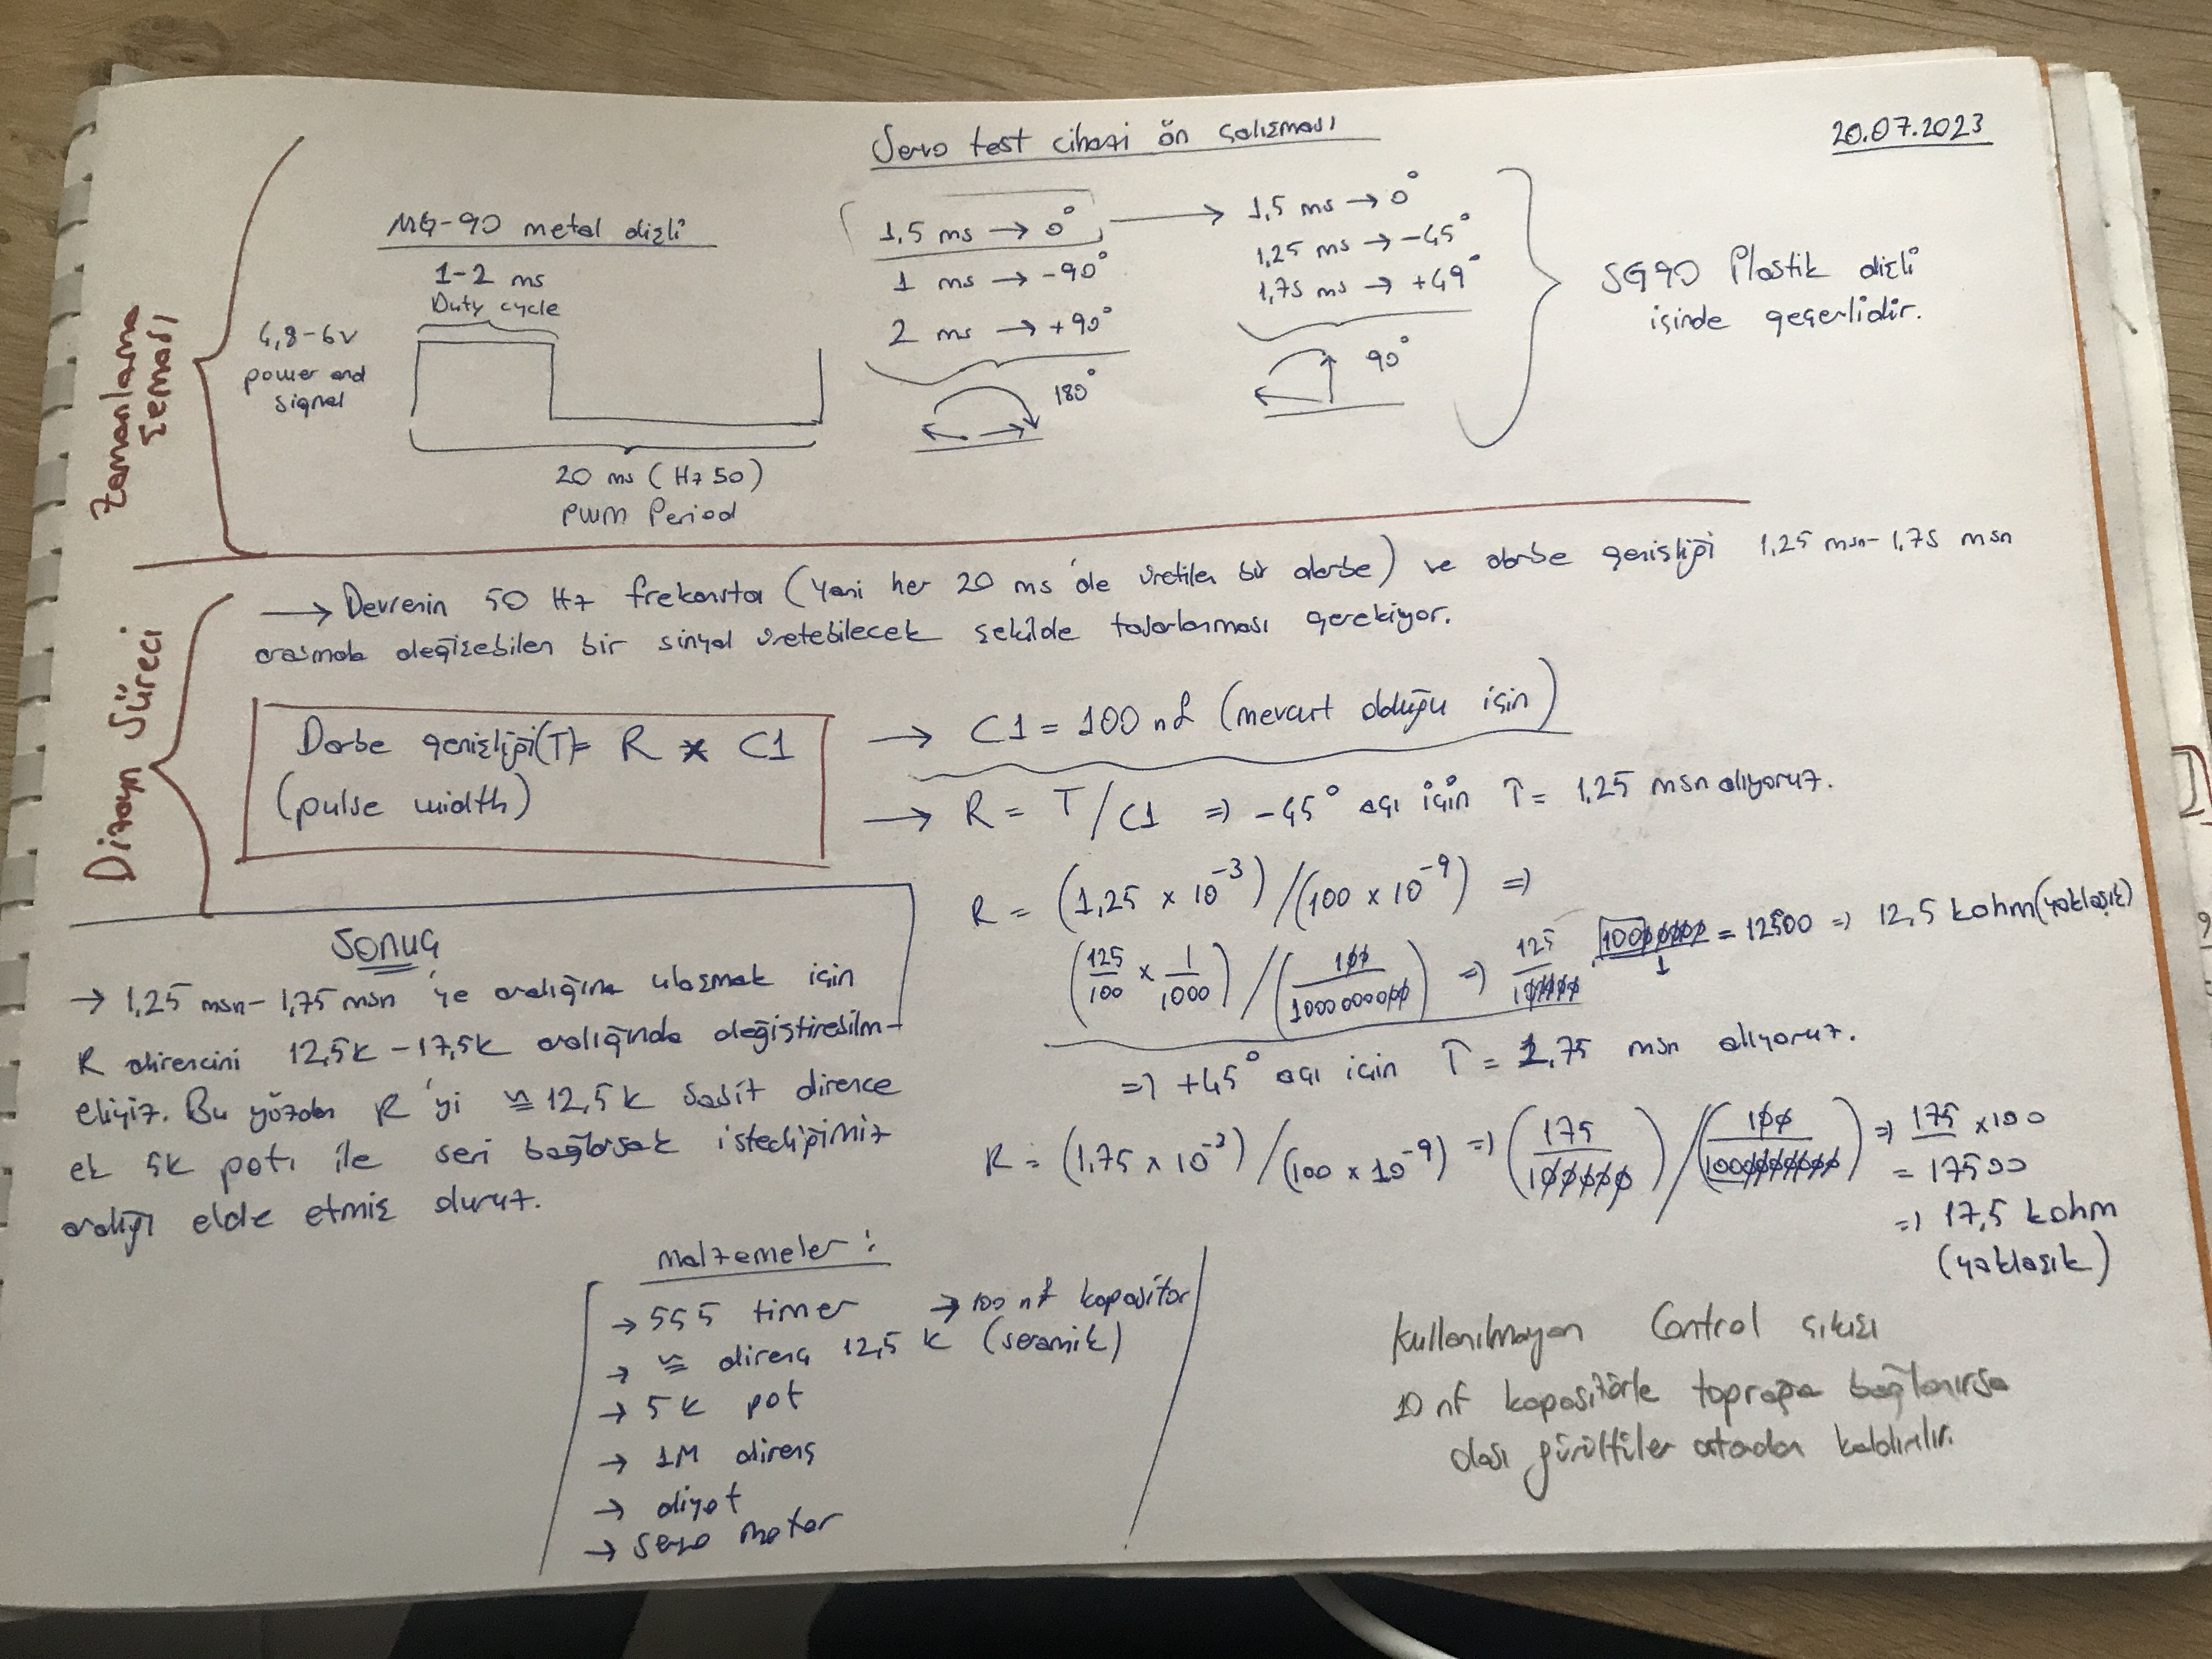 20.07.2023
Servo test cihazı ön çalışması
Zamanlama
Şeması
MG-90 metal dişli
4,8-6v
power and
signal
1-2 ms
Duty cycle
20 ms (Hz 50)
pwm Period
1,5 ms → 0°
1 ms → -90°
2 ms → +90°
180°
1,5 ms → 0°
1,25 ms → -45°
1,75 ms → +49°
90°
SG90 Plastik dişli
içinde geçerlidir.
Dizayn Süreci
→ Devrenin 50 Hz frekansta (yani her 20 ms'de üretilen bir darbe) ve darbe genişliği 1,25 msn-1,75 msn
arasında değişebilen bir sinyal üretebilecek şekilde tasarlanması gerekiyor.
Darbe genişliği(T)= R x C1
(pulse width)
→ C1 = 100 nf (mevcut olduğu için)
→ R = T/C1 => -45° açı için T = 1,25 msn alıyoruz.
R = (1,25 x 10⁻³)/(100 x 10⁻⁹) =>
(125/100 x 1/1000)/(100/100000000) => 125/10000 = 12500 => 12,5 kohm(yaklaşık)
=> +45° açı için T = 1,75 msn alıyoruz.
R = (1,75 x 10⁻³)/(100 x 10⁻⁹) => (175/100000)/(100/1000000000) => 175 x100
= 17500
=> 17,5 kohm
(yaklaşık)
Sonuç
→ 1,25 msn-1,75 msn 'ye aralığına ulaşmak için
R direncini 12,5k-17,5k aralığında değiştirebilm-
eliyiz. Bu yüzden R'yi ≈12,5k sabit dirence
ek 5k potı ile seri bağlarsak istediğimiz
aralığı elde etmiş oluruz.
Malzemeler:
→ 555 timer → 100 nf kapasitör
→ ≈ direnç 12,5 k (seramik)
→ 5k pot
→ 1M direnç
→ diyot
→ servo motor
Kullanılmayan Control çıkışı
10 nf kapasitörle toprağa bağlanırsa
olası gürültüler ortadan kaldırılır.